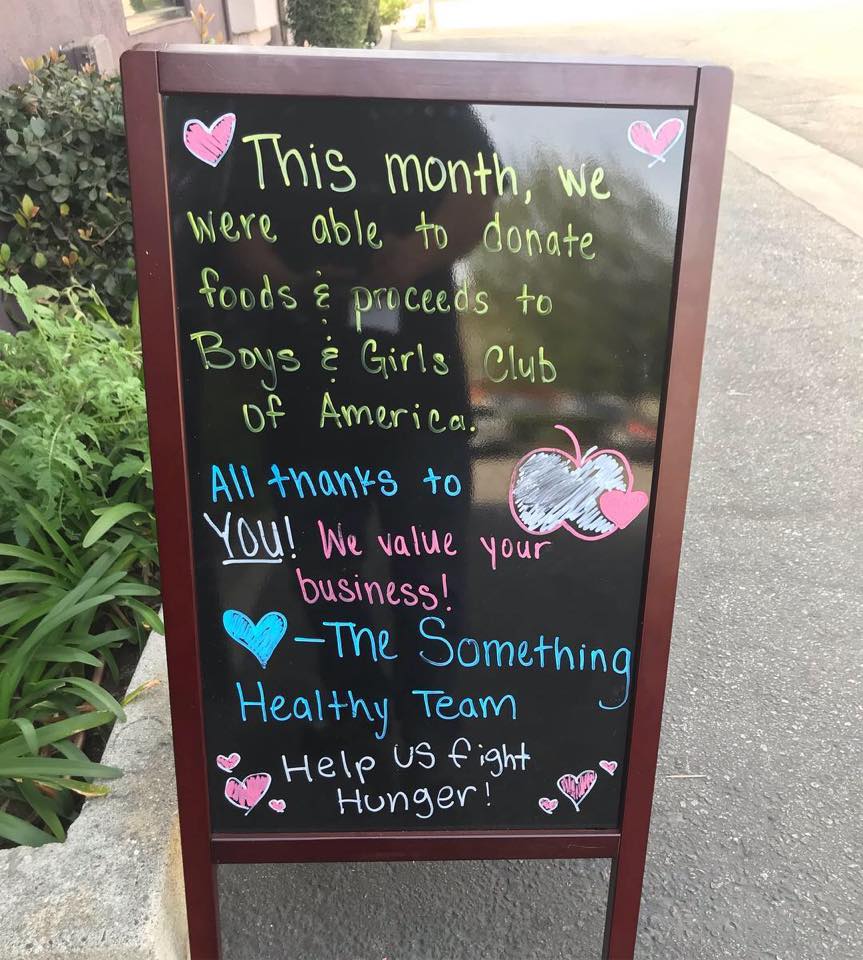 This month, we
were able to donate
foods & proceeds to
Boys & Girls Club
of America.
All thanks to
YOU! We value your
business!
-The Something
Healthy Team
Help us fight
Hunger!